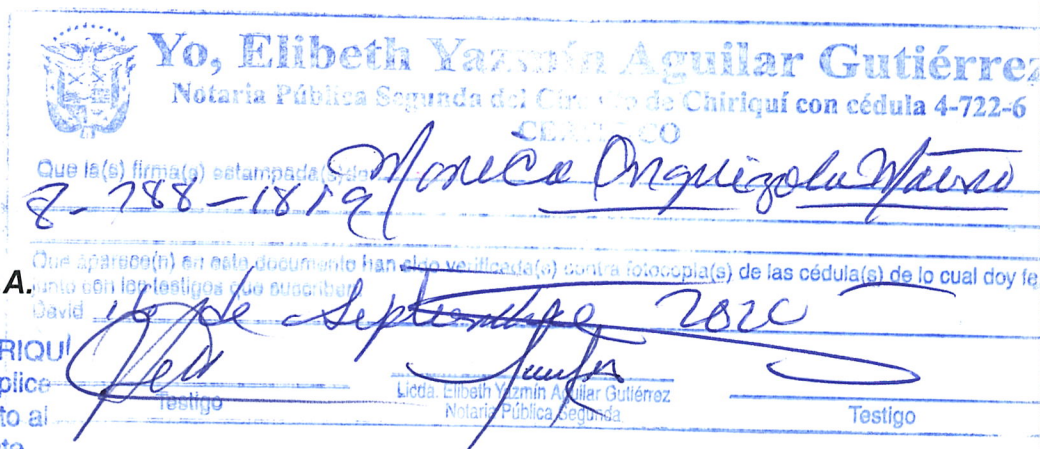 Yo, Elibeth Yazmín Aguilar Gutiérrez
Notaria Pública Segunda del Circuito de Chiriquí con cédula 4-722-6
CERTIFICO
Que la(s) firma(s) estampada(s) de Monica
8-788-1819
Que aparece(n) en este documento han sido verificada(s) contra fotocopia(s) de las cédula(s) de lo cual doy fe
A.
junto con los testigos que suscriben
David 16 de Septiembre 2020
RIQUÍ
plice
Testigo
Licda. Elibeth Yazmín Aguilar Gutiérrez
Notaria Pública Segunda
Testigo
to al